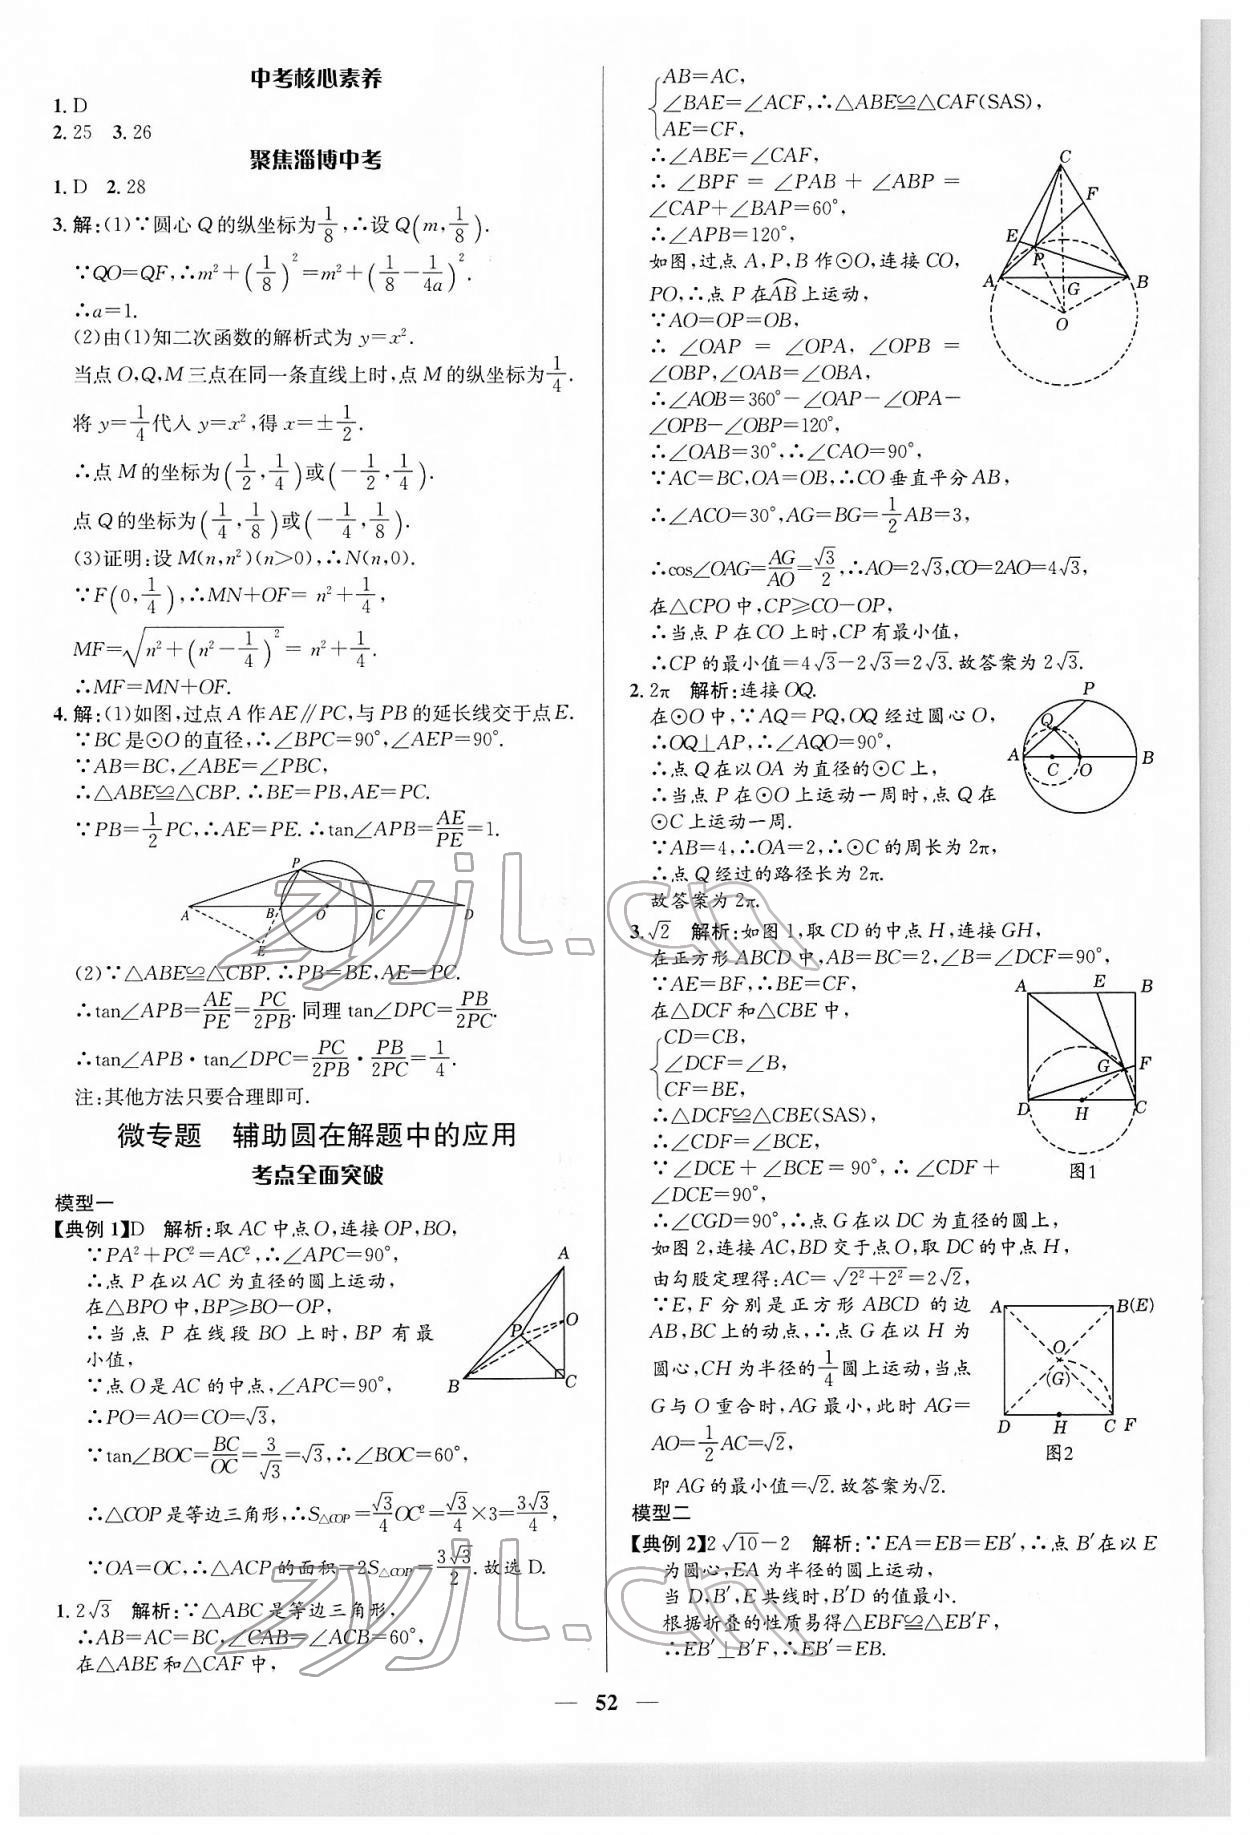 中考核心素养
1. D
2. 25  3. 26
聚焦淄博中考
1. D  2. 28
3. 解:(1)∵圆心 Q 的纵坐标为1/8,∴设 Q(m,1/8).
∵QO=QF,∴m²+(1/8)²=m²+(1/8-1/4a)².
∴a=1.
(2)由(1)知二次函数的解析式为 y=x².
当点 O,Q,M 三点在同一条直线上时,点 M 的纵坐标为1/4.
将 y=1/4代入 y=x²,得 x=±1/2.
∴点 M 的坐标为(1/2,1/4)或(-1/2,1/4).
点 Q 的坐标为(1/4,1/8)或(-1/4,1/8).
(3)证明:设 M(n,n²)(n>0),∴N(n,0).
∵F(0,1/4),∴MN+OF= n²+1/4,
MF=√(n²+(n²-1/4)²)= n²+1/4.
∴MF=MN+OF.
4. 解:(1)如图,过点 A 作 AE∥PC,与 PB 的延长线交于点 E.
∵BC 是⊙O 的直径,∴∠BPC=90°,∠AEP=90°.
∵AB=BC,∠ABE=∠PBC,
∴△ABE≌△CBP. ∴BE=PB,AE=PC.
∵PB=1/2PC,∴AE=PE. ∴tan∠APB=AE/PE=1.
P
A B O C D
E
(2)∵△ABE≌△CBP. ∴PB=BE,AE=PC.
∴tan∠APB=AE/PE=PC/2PB. 同理 tan∠DPC=PB/2PC.
∴tan∠APB·tan∠DPC=PC/2PB·PB/2PC=1/4.
注:其他方法只要合理即可.
微专题 辅助圆在解题中的应用
考点全面突破
模型一
【典例 1】D 解析:取 AC 中点 O,连接 OP,BO,
∵PA²+PC²=AC²,∴∠APC=90°,
∴点 P 在以 AC 为直径的圆上运动,
在△BPO 中,BP≥BO-OP,
∴当点 P 在线段 BO 上时,BP 有最
小值,
∵点 O 是 AC 的中点,∠APC=90°,
∴PO=AO=CO=√3,
∵tan∠BOC=BC/OC=3/√3=√3,∴∠BOC=60°,
∴△COP 是等边三角形,∴S△COP=√3/4OC²=√3/4×3=3√3/4,
∵OA=OC,∴△ACP 的面积=2S△COP=3√3/2. 故选 D.
A
P O
B C
1. 2√3 解析:∵△ABC 是等边三角形,
∴AB=AC=BC,∠CAB=∠ACB=60°,
在△ABE 和△CAF 中,
AB=AC,
∠BAE=∠ACF,∴△ABE≌△CAF(SAS),
AE=CF,
∴∠ABE=∠CAF,
∴ ∠BPF = ∠PAB + ∠ABP =
∠CAP+∠BAP=60°,
∴∠APB=120°,
如图,过点 A,P,B 作⊙O,连接 CO,
PO,∴点 P 在AB⌒上运动,
∵AO=OP=OB,
∴ ∠OAP = ∠OPA, ∠OPB =
∠OBP,∠OAB=∠OBA,
∴∠AOB=360°-∠OAP-∠OPA-
∠OPB-∠OBP=120°,
∴∠OAB=30°,∴∠CAO=90°,
∵AC=BC,OA=OB,∴CO 垂直平分 AB,
∴∠ACO=30°,AG=BG=1/2AB=3,
∴cos∠OAG=AG/AO=√3/2,∴AO=2√3,CO=2AO=4√3,
在△CPO 中,CP≥CO-OP,
∴当点 P 在 CO 上时,CP 有最小值,
∴CP 的最小值=4√3-2√3=2√3. 故答案为 2√3.
C
F
E P
A G B
O
2. 2π 解析:连接 OQ.
在⊙O 中,∵AQ=PQ,OQ 经过圆心 O,
∴OQ⊥AP,∴∠AQO=90°,
∴点 Q 在以 OA 为直径的⊙C 上,
∴当点 P 在⊙O 上运动一周时,点 Q 在
⊙C 上运动一周.
∵AB=4,∴OA=2,∴⊙C 的周长为 2π,
∴点 Q 经过的路径长为 2π.
故答案为 2π.
P
Q
A C O B
3. √2 解析:如图 1,取 CD 的中点 H,连接 GH,
在正方形 ABCD 中,AB=BC=2,∠B=∠DCF=90°,
∵AE=BF,∴BE=CF,
在△DCF 和△CBE 中,
CD=CB,
∠DCF=∠B,
CF=BE,
∴△DCF≌△CBE(SAS),
∴∠CDF=∠BCE,
∵∠DCE+∠BCE=90°,∴∠CDF+
∠DCE=90°,
∴∠CGD=90°,∴点 G 在以 DC 为直径的圆上,
如图 2,连接 AC,BD 交于点 O,取 DC 的中点 H,
由勾股定理得:AC=√(2²+2²)=2√2,
∵E, F 分别是正方形 ABCD 的边
AB,BC 上的动点,∴点 G 在以 H 为
圆心,CH 为半径的1/4圆上运动,当点
G 与 O 重合时,AG 最小,此时 AG=
AO=1/2AC=√2,
即 AG 的最小值=√2. 故答案为√2.
A E B
G F
D H C
图1
A B(E)
O
(G)
D H C F
图2
模型二
【典例 2】2√10-2 解析:∵EA=EB=EB′,∴点 B′在以 E
为圆心,EA 为半径的圆上运动,
当 D,B′,E 共线时,B′D 的值最小.
根据折叠的性质易得△EBF≌△EB′F,
∴EB′⊥B′F,∴EB′=EB.
— 52 —
zyjl.cn
zyjl.cn